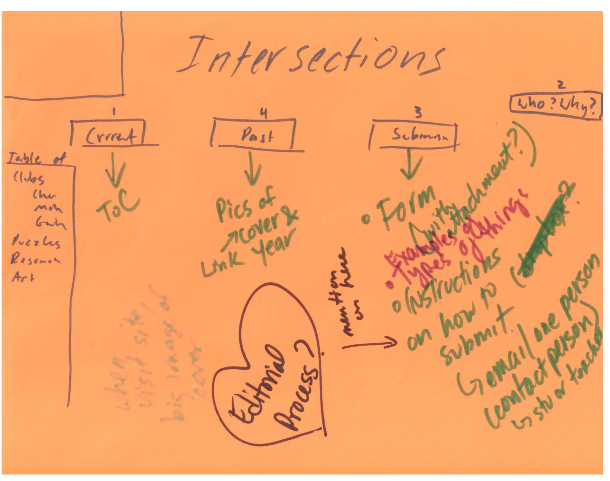 Intersections
1
Current
4
Past
3
Submission
2
Who? Why?
Table of
Clubs
Che
Math
Puzzles
Research
Art
ToC
Pics of
cover &
Link Year
Form
(with
attachment?)
Examples of
types of things
Instructions
on how to
submit
email one person
(contact person)
stu or teacher
mention
on here
Editorial
Process?
when
visit site,
big image of
cover